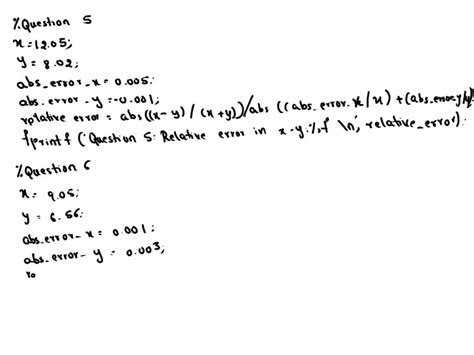 %Question 5
x=12.05;
y = 8.02;
abs_error_x = 0.005.
abs_error_y =-0.001;
relative error = abs((x-y) / (x+y))/abs ((abs_error_x/x) + (abs_error_y/y)
fprintf ('Question 5: Relative error in x-y: %f \n', relative_error).
%Question 6
x = 9.05;
y = 6.56;
abs_error_x = 0.001;
abs_error_y = 0.003;